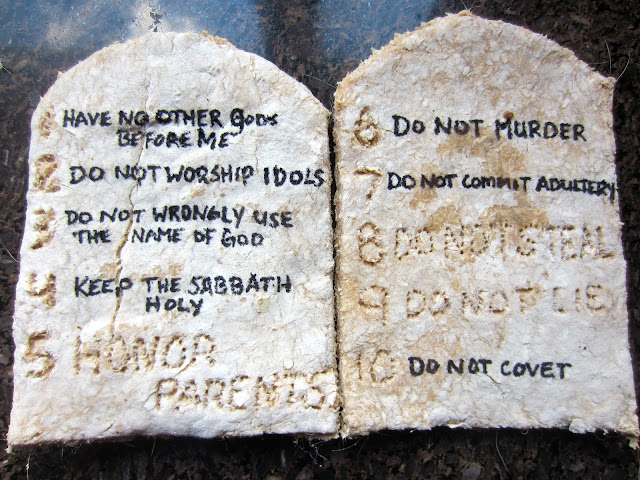 1 HAVE NO OTHER GODS
BEFORE ME
2 DO NOT WORSHIP IDOLS
3 DO NOT WRONGLY USE
THE NAME OF GOD
4 KEEP THE SABBATH
HOLY
5 HONOR
PARENTS
6 DO NOT MURDER
7 DO NOT COMMIT ADULTERY
8 DO NOT STEAL
9 DO NOT LIE
10 DO NOT COVET